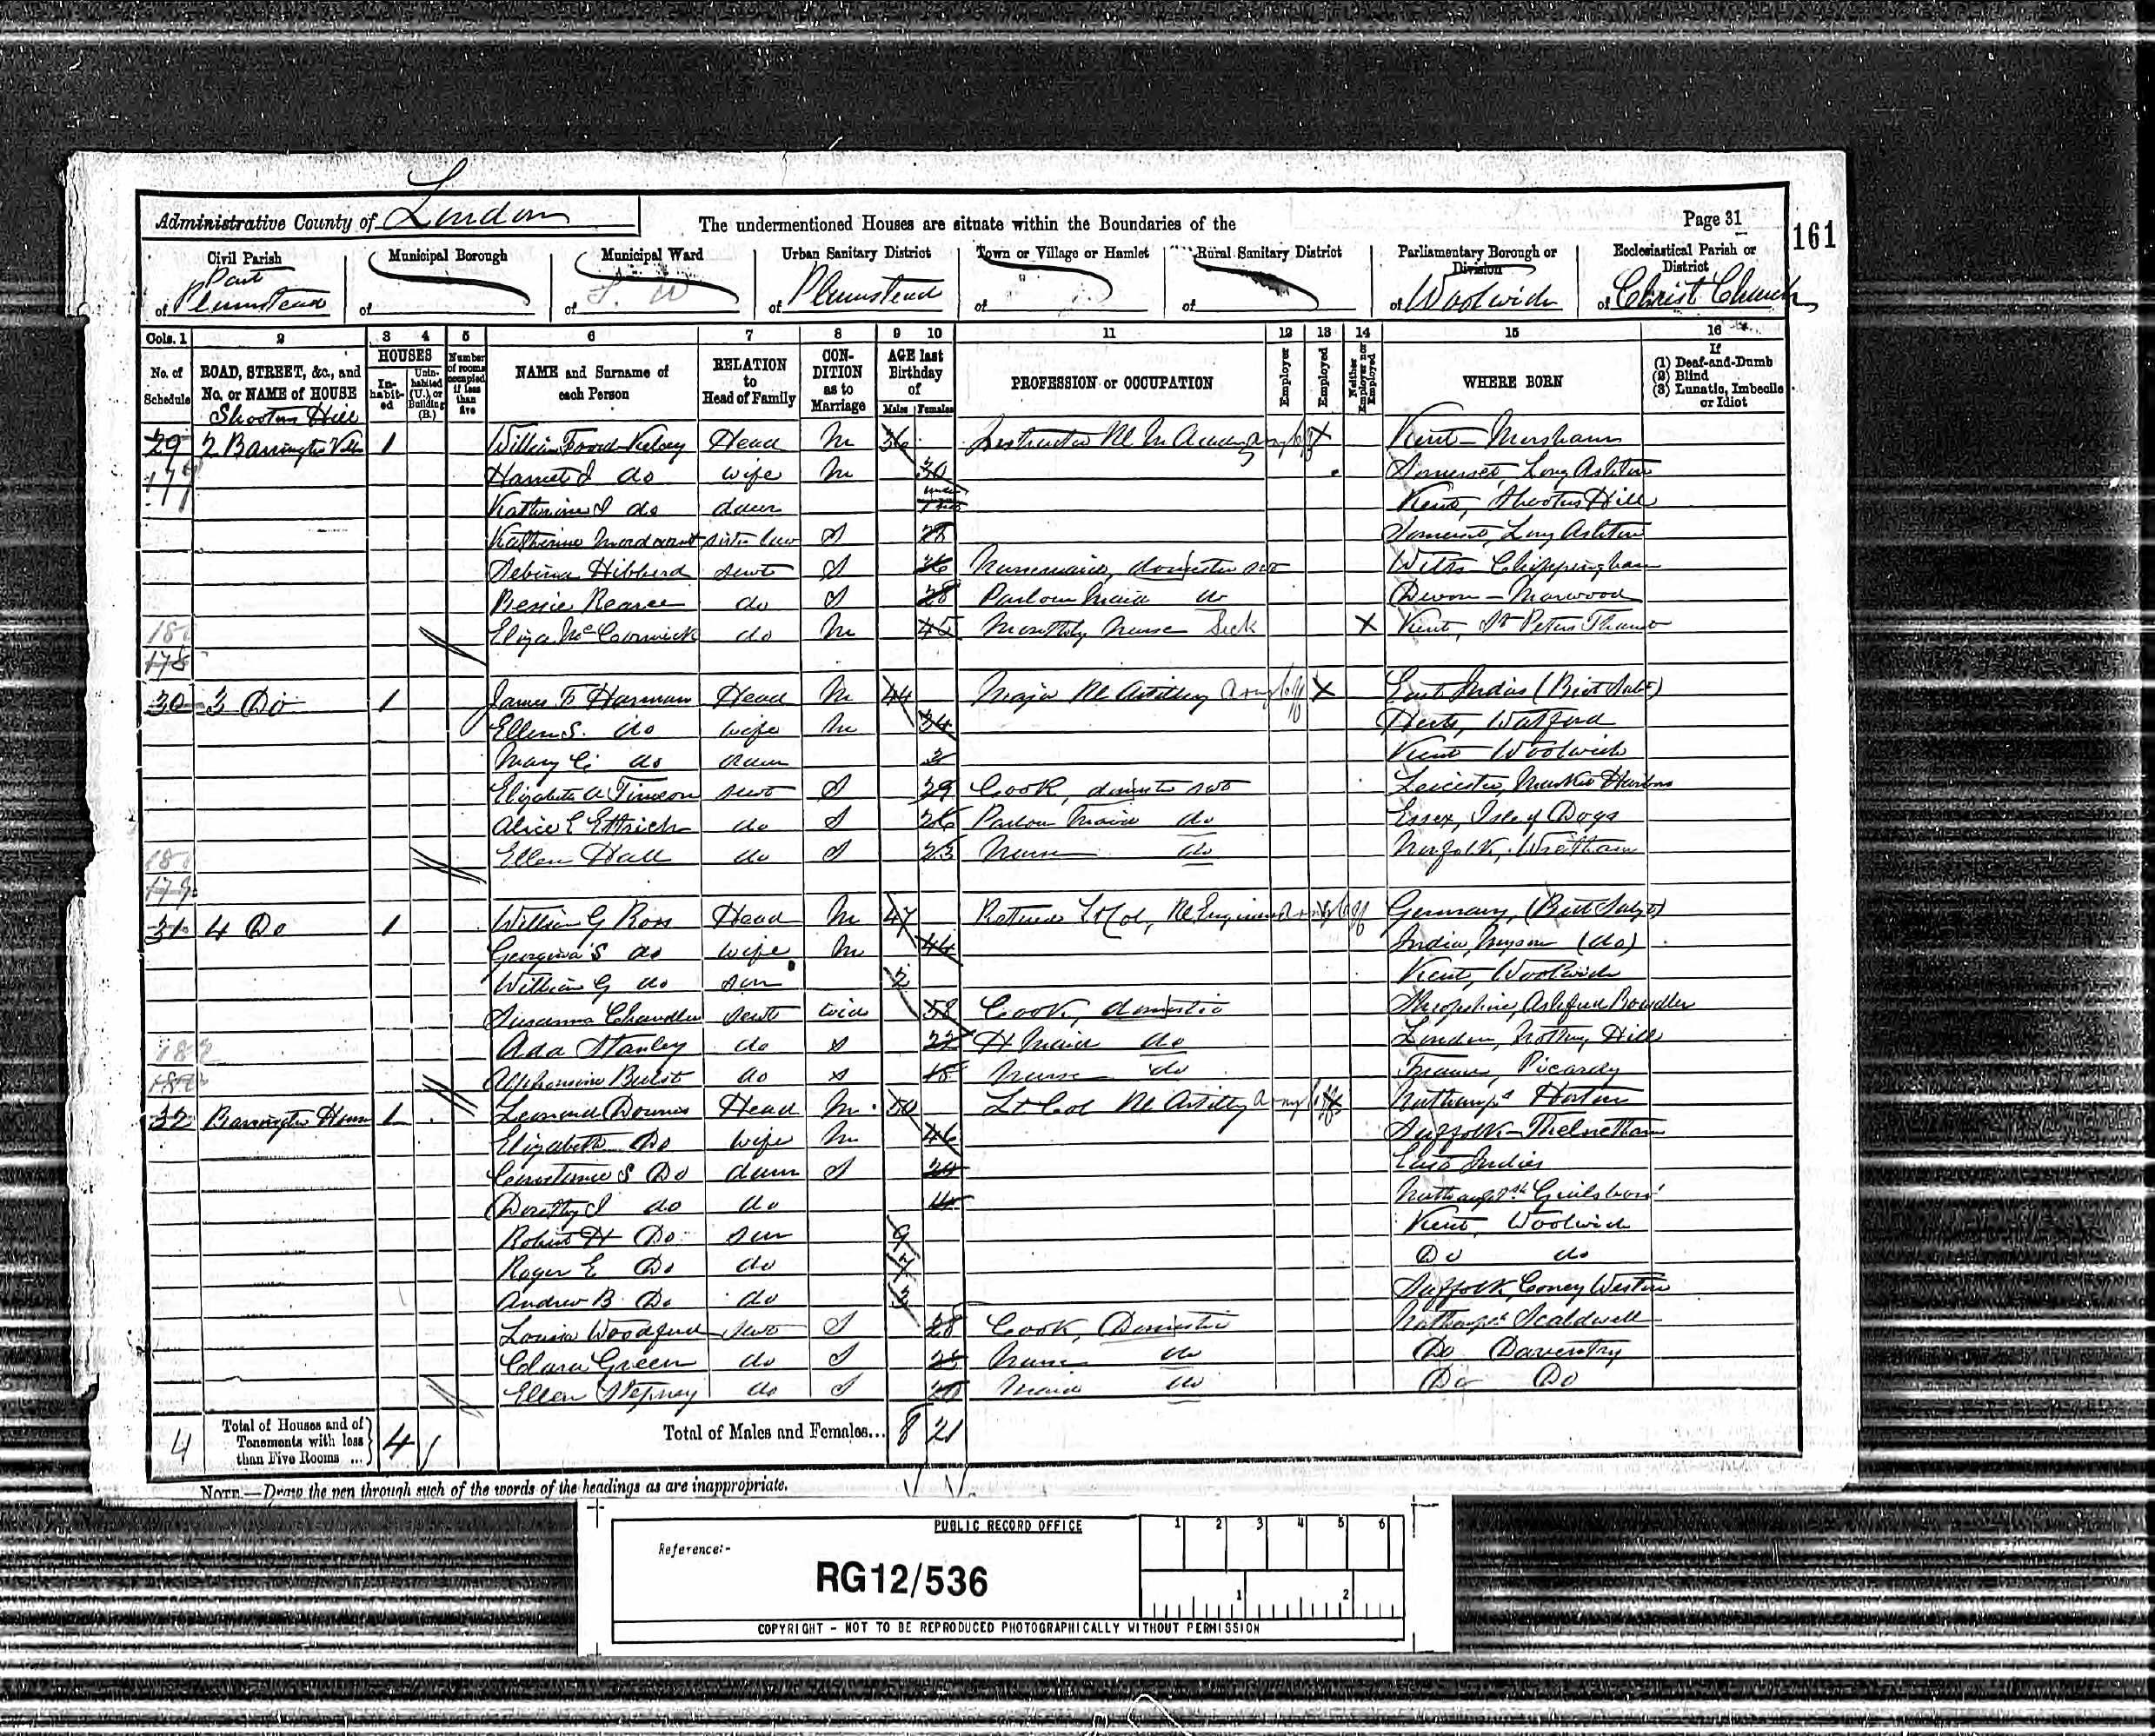 Administrative County of London
The undermentioned Houses are situate within the Boundaries of the
Page 31
161
Civil Parish
Part
of Plumstead
Municipal Borough
of
Municipal Ward
of
Urban Sanitary District
of Plumstead
Town or Village or Hamlet
of
Rural Sanitary District
of
Parliamentary Borough or
Division
of Woolwich
Ecclesiastical Parish or
District
of Christ Church
Cols. 1 2 3 4 5 6 7 8 9 10 11 12 13 14 15 16
No. of Schedule
ROAD, STREET, &c., and No. or NAME of HOUSE
HOUSES
In-habit-ed
Unin-habited (U.), or Building (B.)
Number of rooms occupied if less than five
NAME and Surname of each Person
RELATION to Head of Family
CON-DITION as to Marriage
AGE last Birthday of
Males Females
PROFESSION or OCCUPATION
Employer
Employed
Neither Employer nor Employed
WHERE BORN
If
(1) Deaf-and-Dumb
(2) Blind
(3) Lunatic, Imbecile or Idiot
Shooters Hill
29 2 Barrington Villas 1 William Foord Kelsey Head M 36 Instructor Rl M Academy X Kent Mersham
Harriet J do wife M 30 Somerset, Long Ashton
Katherine J do daur under Kent, Shooters Hill
Katherine Mordaunt sister law S 28 Somerset, Long Ashton
Sebina Hibberd servt S 26 Nursemaid, domestic svt Wilts Chippingham
Bessie Pearce do S 28 Parlour Maid do Devon - Marwood
Eliza McCormick do M 45 Monthly Nurse Sick X Kent, St Peters Thanet
178
30 3 Do 1 James F Harman Head M 44 Major Rl Artillery Army X East Indies (Brit Subt)
Ellen S. do wife M 34 Herts, Watford
Mary C. do daur 3 Kent Woolwich
Elizabeth A Timson servt S 29 Cook, domestic svt Leicester, Market Harboro
Alice E do S 26 Parlour Maid do Essex, Isle of Dogs
Ellen Hall do S 23 Nurse do Norfolk, Wretham
179
31 4 Do 1 William G Ross Head M 47 Retired Lt Col, Rl Engineers Germany, (Brit Subjt)
Georgina S do wife M 44 India, Mysore (do)
William G do son 2 Kent, Woolwich
Susanna Chandler servt wid 58 Cook, domestic Shropshire, Ashford Bowdler
Ada Stanley do S 22 H Maid do London, Notting Hill
182
Alphonsine do S 18 Nurse do France, Picardy
32 Barrington House 1 Leonard Downes Head M 50 Lt Col Rl Artilly Army Northamps Horton
Elizabeth Do wife M 46 Suffolk - Thelnetham
Constance S Do daur S East Indies
Dorothy J do do Guilsboro'
Robert H Do son 9 Kent, Woolwich
Roger E Do do 7 Do do
Andrew B Do do 3 Suffolk, Coney Weston
Louisa Woodford servt S 28 Cook, Domestic Northamps Scaldwell
Clara Green do S Nurse do Do Daventry
Ellen Stepney do S Maid do Do Do
4
Total of Houses and of Tenements with less than Five Rooms ... 4
Total of Males and Females... 8 21
NOTE.—Draw the pen through such of the words of the headings as are inappropriate.
PUBLIC RECORD OFFICE
Reference:-
RG12/536
1 2 3 4 5 6
1 2
COPYRIGHT - NOT TO BE REPRODUCED PHOTOGRAPHICALLY WITHOUT PERMISSION